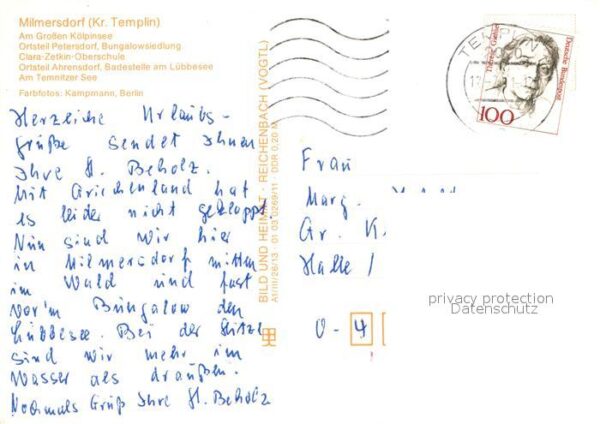 Milmersdorf (Kr. Templin)
Am Großen Kölpinsee
Ortsteil Petersdorf, Bungalowsiedlung
Clara-Zetkin-Oberschule
Ortsteil Ahrensdorf, Badestelle am Lübbesee
Am Temnitzer See
Farbfotos: Kampmann, Berlin
Herzliche Urlaubs-
grüße sendet Ihnen
Ihre H. Beholz.
Mit Griechenland hat
es leider nicht geklappt.
Nun sind wir hier
in Milmersdorf mitten
im Wald und fast
vor'm Bungalow den
Lübbesee. Bei der Hitze
sind wir mehr im
Wasser als draußen.
Nochmals Gruß Ihre H. Beholz
BILD UND HEIMAT · REICHENBACH (VOGTL)
01 03 0269/11 · DDR 0,20 M
TEMPLIN
Therese Giehse
Deutsche Bundespost
100
Frau
Marg.
Gr. K.
Halle /
O - 4
privacy protection
Datenschutz